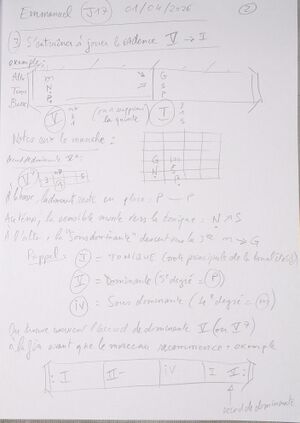 Emmanuel J17 01/04/2026 ②
③ S'entraîner à jouer la cadence V → I
exemple:
Alto m → G
Téno N S
Basse P P
V (on a supprimé la quinte) I
Notes sur le manche:
G
N S
P
V7
À la basse, la dominante reste en place: P — P
Au téno, la sensible monte vers la tonique: N ↗ S
À l'alto, la "sous dominante" descend sur la 3ce m → G
Rappel: I = TONIQUE (note principale de la tonalité)
V = Dominante (5e degré = P)
IV = Sous dominante (4e degré = m)
On trouve souvent l'accord de dominante V (ou V7)
à la fin avant que le morceau recommence + exemple
I II- IV I V :
accord de dominante